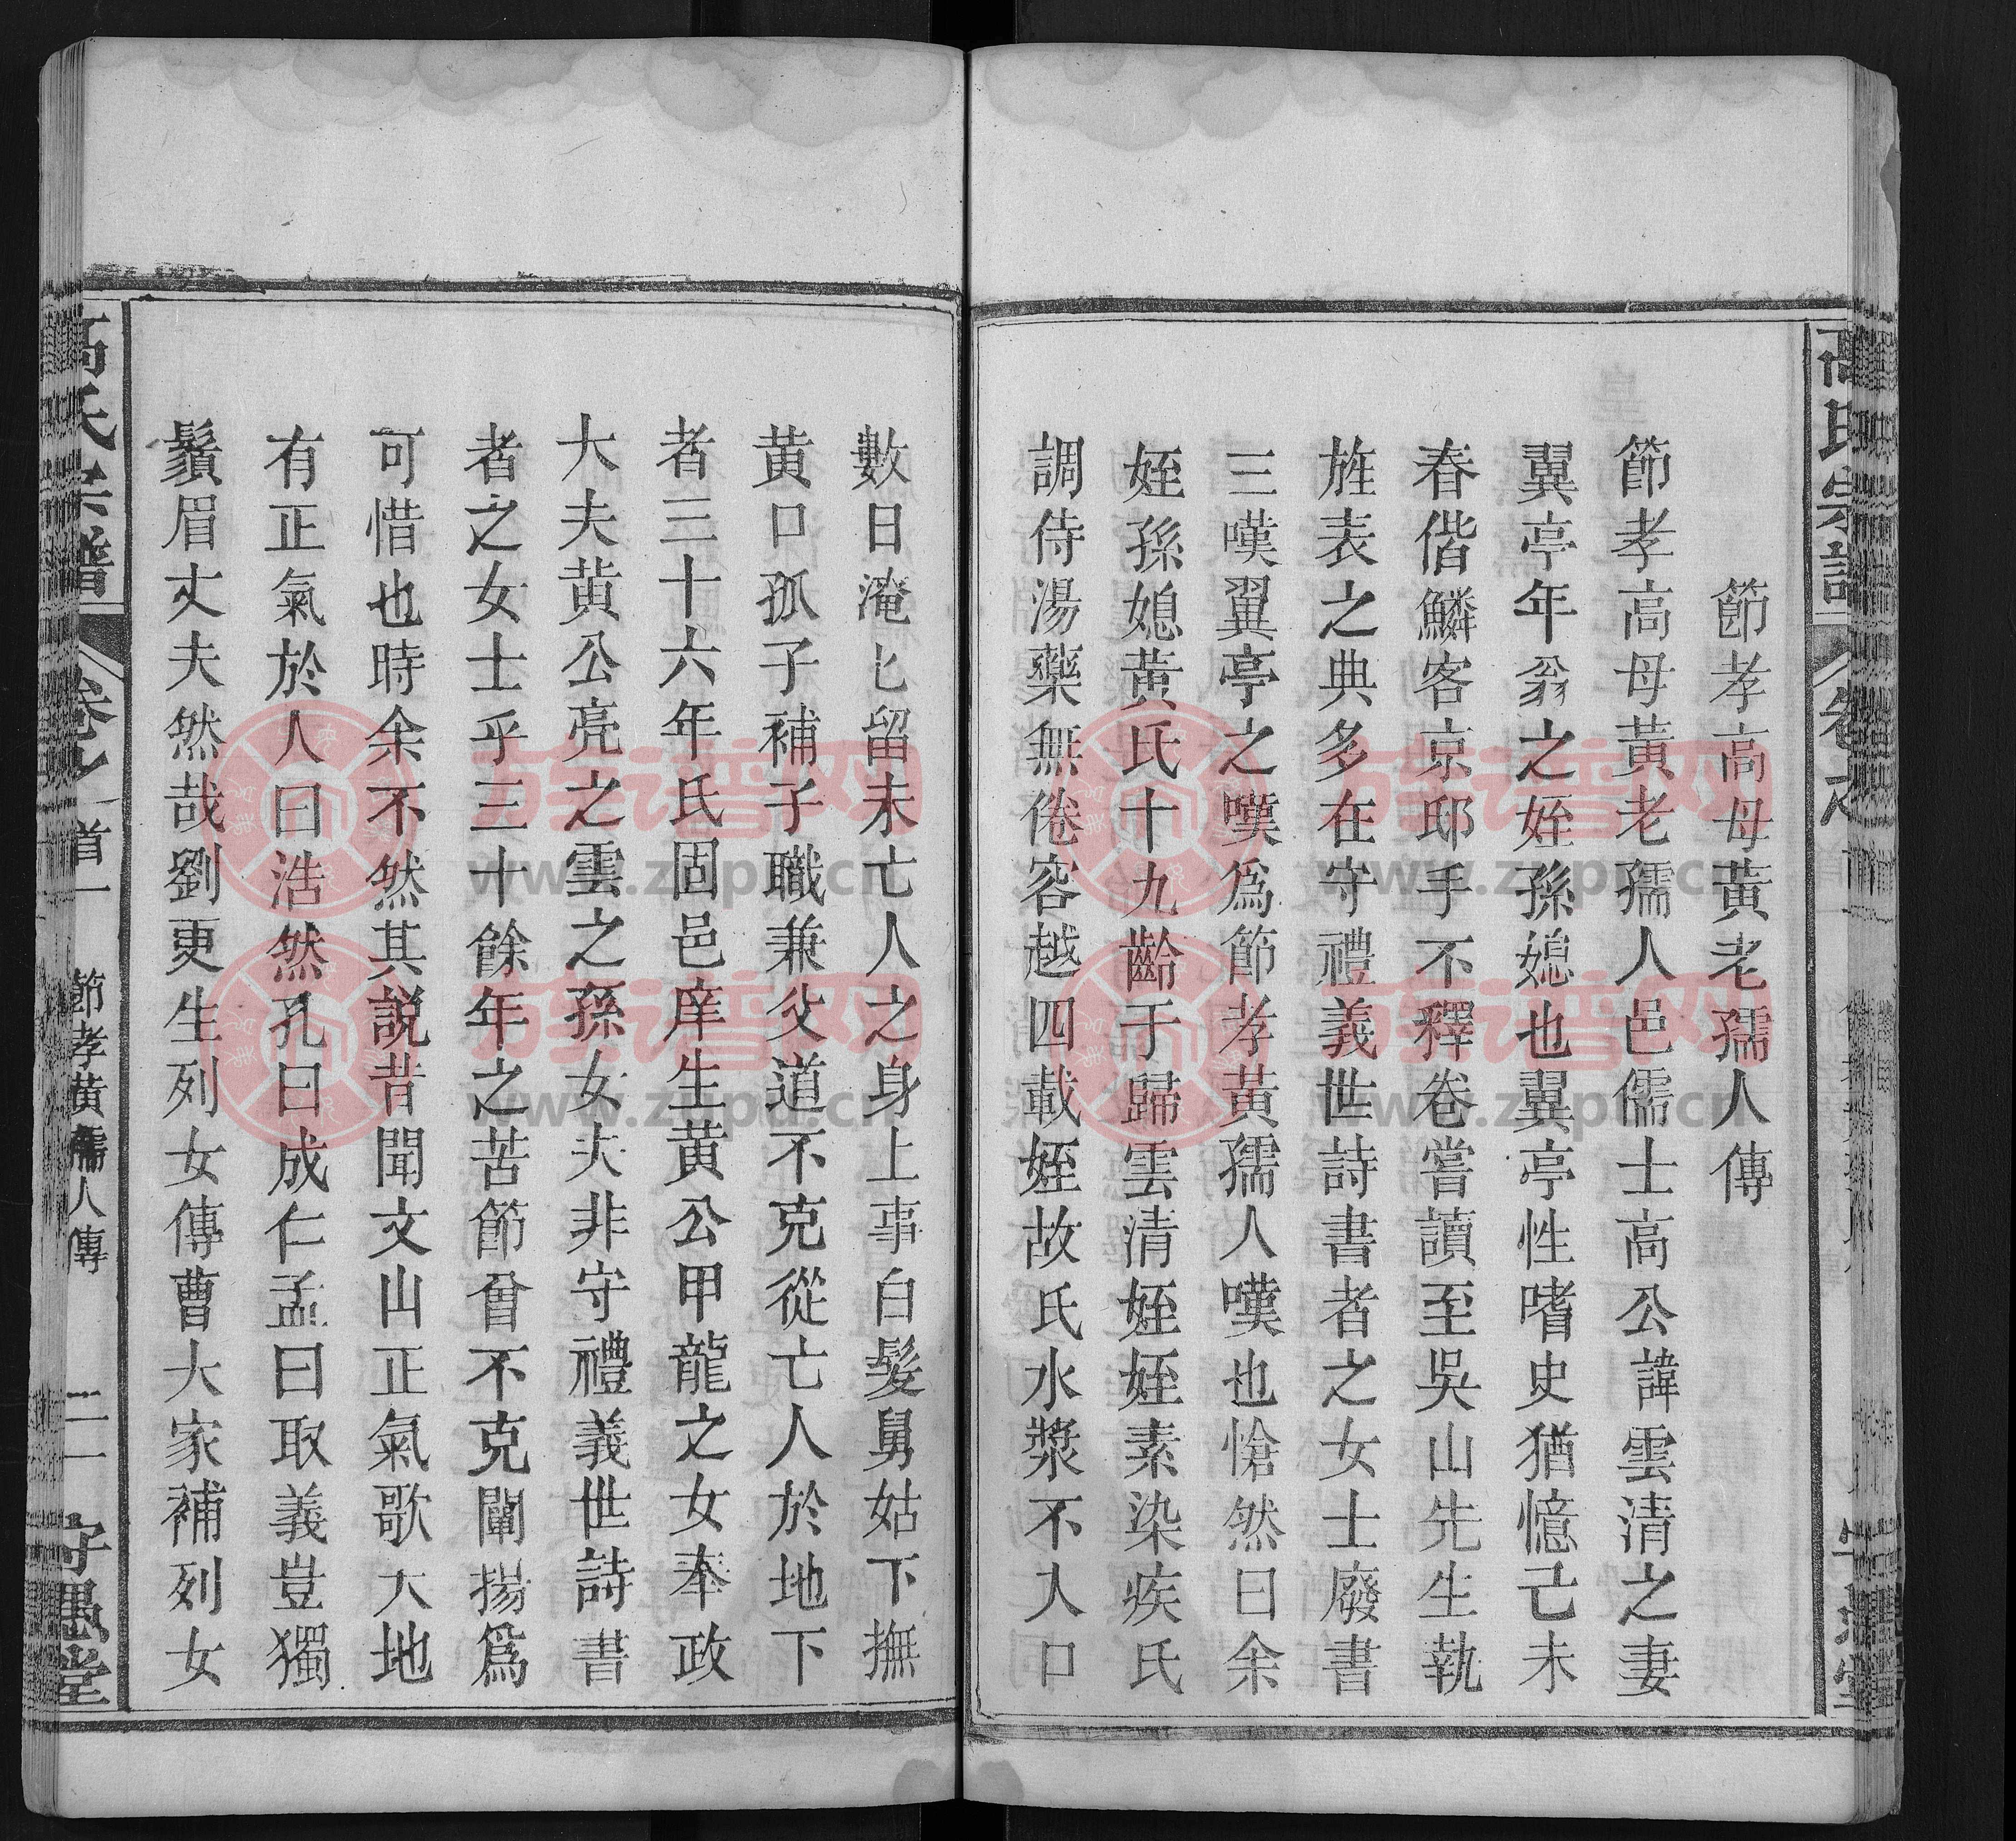 節孝高母黃老孺人傳
節孝高母黃老孺人邑儒士高公諱雲清之妻
翼亭年翁之姪孫媳也翼亭性嗜史猶憶己未
春偕鱗客京邸手不釋卷嘗讀至吳山先生執
旌表之典多在守禮義世詩書者之女士廢書
三嘆翼亭之嘆爲節孝黃孺人嘆也愴然曰余
姪孫媳黃氏十九齡于歸雲清姪姪素染疾氏
調侍湯藥無倦容越四載姪故氏水漿不入口
數日淹匕留未亡人之身上事白髮舅姑下撫
黃口孤子補子職兼父道不克從亡人於地下
者三十六年氏固邑庠生黃公甲龍之女奉政
大夫黃公亮之雲之孫女夫非守禮義世詩書
者之女士乎三十餘年之苦節曾不克闡揚爲
可惜也時余不然其説昔聞文山正氣歌大地
有正氣於人曰浩然孔曰成仁孟曰取義豈獨
鬚眉丈夫然哉劉更生列女傳曹大家補列女
高氏宗譜
卷之首一
節孝黃孺人傳
二一
守愚堂
高氏宗譜
www.zupu.cn
族谱网
www.zupu.cn
族谱网
www.zupu.cn
族谱网
www.zupu.cn
族谱网